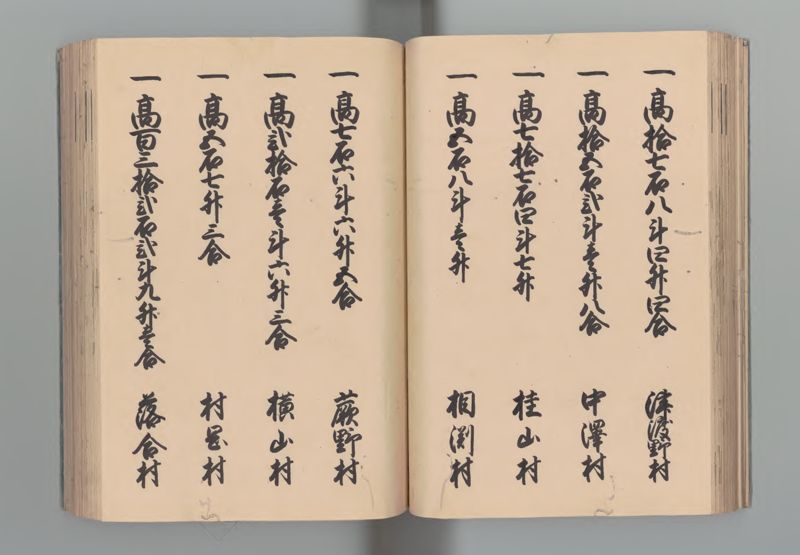 一高拾七石八斗四升四合 津渡野村
一高拾五石弐斗壱升八合 中澤村
一高七拾七石四斗七升 桂山村
一高五石八斗壱升 相渕村
一高七石六斗六升五合 蕨野村
一高弐拾石壱斗六升三合 横山村
一高五石七升三合 村 村
一高百三拾弐石弐斗九升壱合 落合村